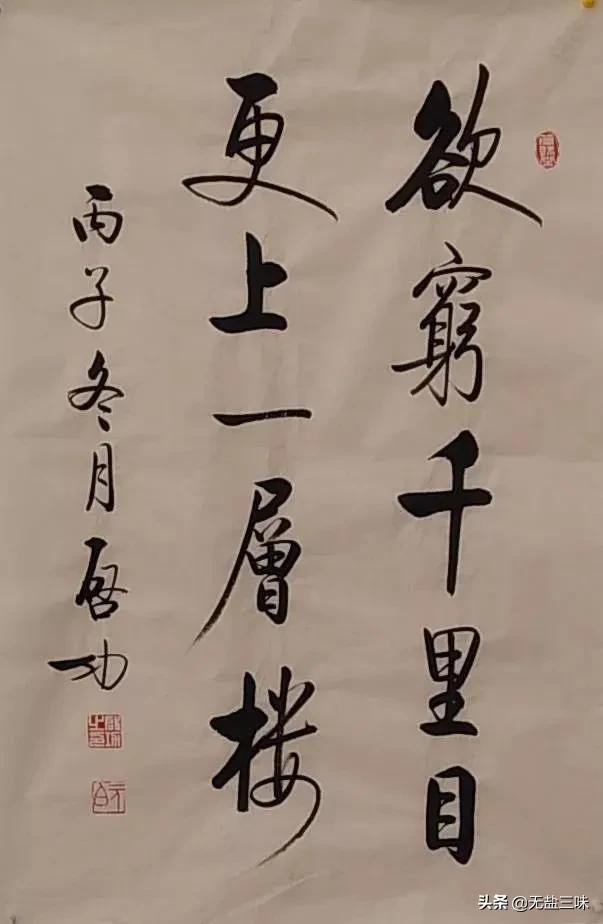 欲窮千里目
更上一層楼
丙子冬月啓功
头条 @无盐三味